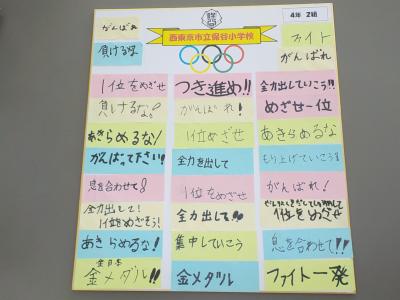 がんばれ
負けるな
西東京市立保谷小学校
4年 2組
ファイト
がんばれ
1位をめざせ
つき進め!!
全力出していこう!!
負けるな!
がんばれ!
めざせ一位
あきらめるな!
1位めざせ
あきらめるな
がんばって下さい!
全力を出して
もり上げていこう
息を合わせて!
1位をめざせ
がんばれ!
全力出して!
1位めざそう!
全力出して!!
1位をめざせ
あきらめるな!
集中していこう
息を合わせて!!
全日本
金メダル!!
金メダル
ファイト一発